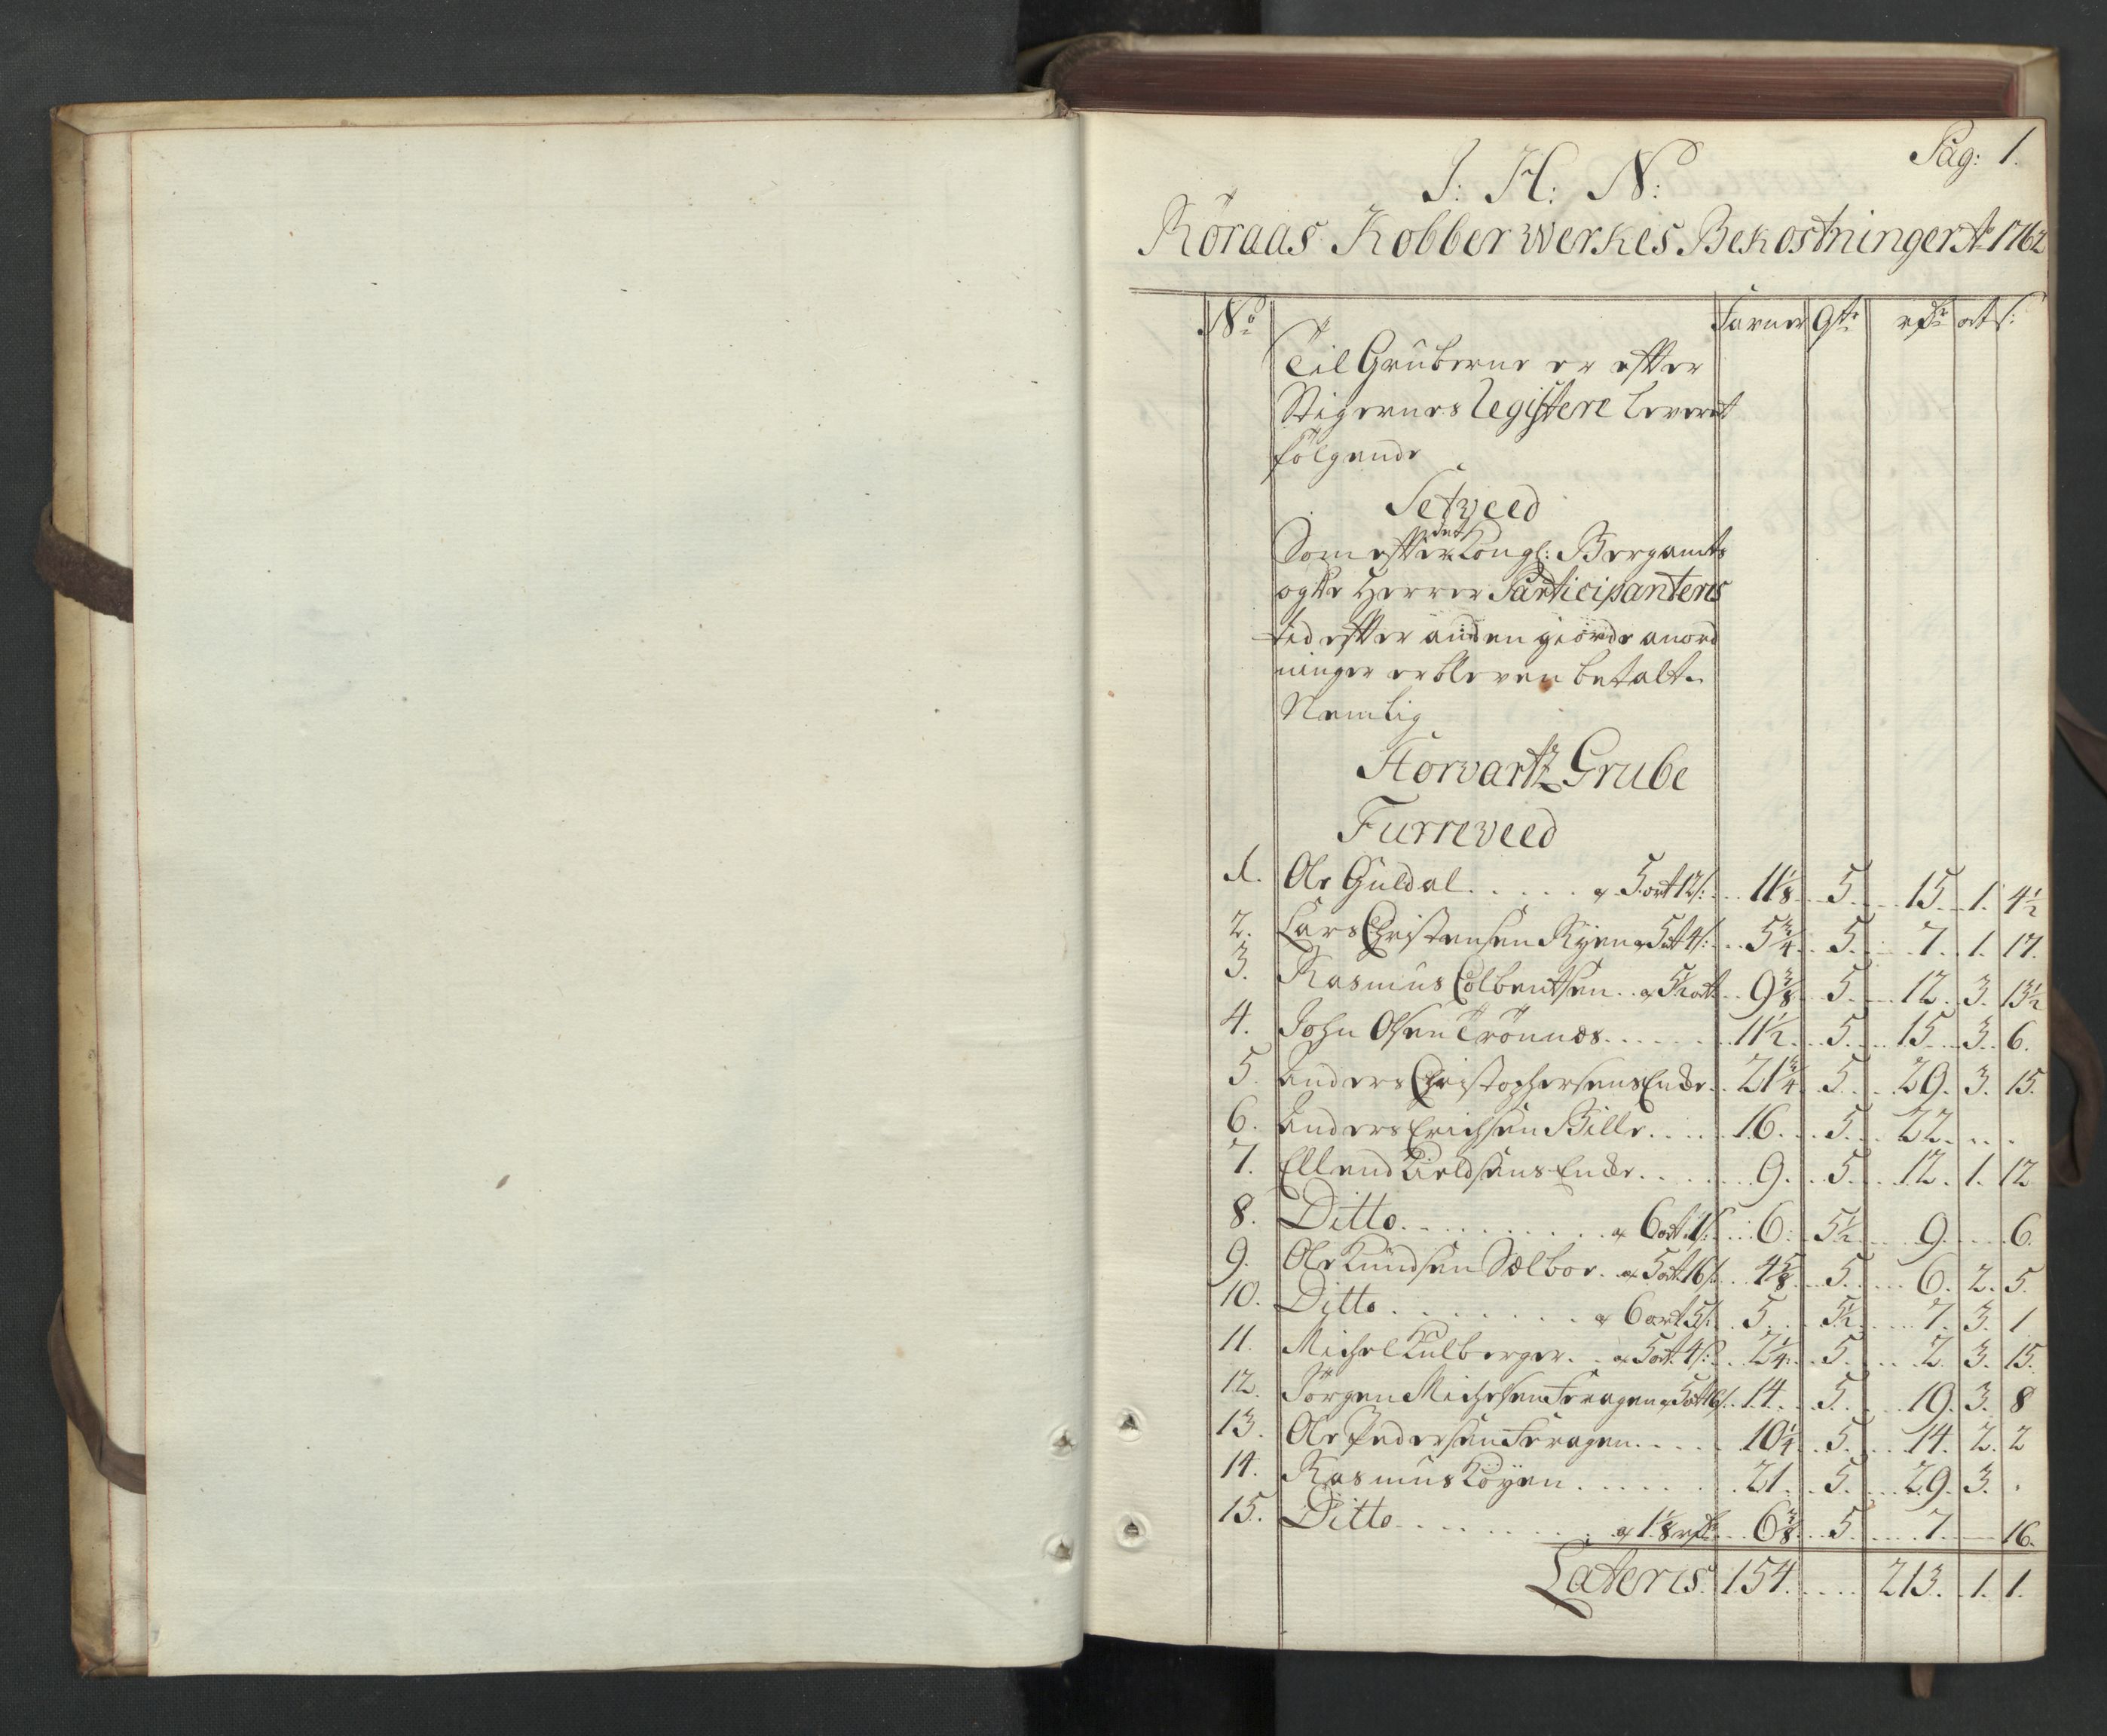 Pag: 1.
J: H: N:
Röraas Kobberwerkes Bekostninger Ao 1762
No Favner Qtr rdr ort s:
Til Gruberne er efter
Stigernes Registere leveret
følgende
Setveed
Som efter det Kongl: Bergamts
og de Herrer Participanteres
tid efter anden giorde anord
ninger er bleven betalt.
Nemlig
Storvartz Grube
Furreveed
1. Ole Guldal..... a 5 ort 12 s: 11 1/8 5 15 1. 4 1/2
2. Lars Christensen Ryen a 5 ort 4 s: 5 3/4 5 7 1. 17.
3. Rasmus Colbentsen.. a 5 1/2 ort 9 3/8 5 12. 3. 13 1/2
4. John Olsen Trönnes...... 11 1/2 5 15 3. 6.
5. Anders Christophersens Encke. 21 3/4 5 29. 3. 15.
6. Anders Erichsen Bille..... 16 5 22...
7. Ellend Kieldsens Encke..... 9. 5 12. 1. 12
8. Ditto......... a 6 ort 1 s: 6. 5 1/2 9. 6.
9. Ole Knudsen Sælboe. a 5 ort 16 s: 4 5/8 5 6. 2. 5.
10. Ditto........ a 6 ort 5 s: 5 5 1/2 7. 3. 1
11. Michel Kulberger.. a 5 ort 4 s: 2 1/4 5 2. 3. 15.
12. Jörgen Michelsen Feragen a 5 ort 16 s 14. 5. 19. 3. 8
13. Ole Pedersen Feragen..... 10 1/4 5 14. 2. 2
14. Rasmus Köyen...... 21 5 29. 3. .
15. Ditto........ a 1 1/8 rdr 6 3/8 5 7. 16.
Lateris. 154. 213. 1. 1.